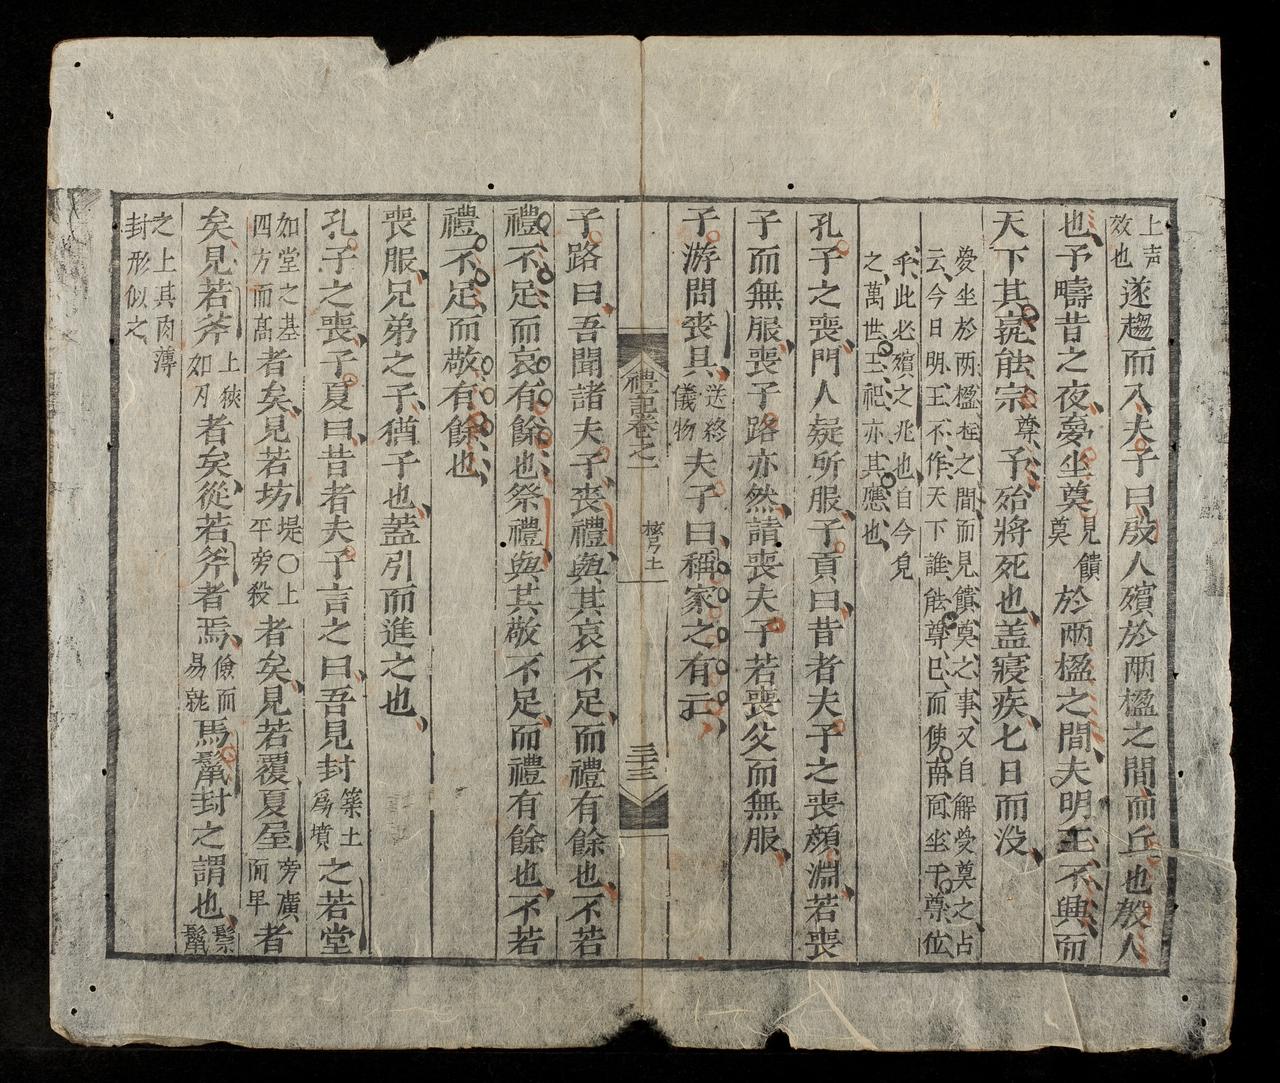 上声效也遂趨而入夫子曰殷人殯於兩楹之間而丘也殷人
也予疇昔之夜夣坐奠見饋奠於兩楹之間夫明王不興而
天下其孰能宗尊予予殆將死也盖寢疾七日而没
夣坐於兩楹之間而見饋奠之事又自解夣奠之占
云今日明王不作天下誰能尊已而使南面坐于尊位
乎此必殯之兆也自今見
之萬世王祀亦其應也
孔子之喪門人疑所服子貢曰昔者夫子之喪顔淵若喪
子而無服喪子路亦然請喪夫子若喪父而無服
子游問喪具送終儀物夫子曰稱家之有亡
禮記卷之一 檀弓上 三十三
子路曰吾聞諸夫子喪禮與其哀不足而禮有餘也不若
禮不足而哀有餘也祭禮與其敬不足而禮有餘也不若
禮不足而敬有餘也
喪服兄弟之子猶子也蓋引而進之也
孔子之喪子夏曰昔者夫子言之曰吾見封築土爲墳之若堂
如堂之基四方而髙者矣見若坊堤〇上平旁殺者矣見若覆夏屋旁廣而卑者
矣見若斧上狹如刃者矣從若斧者焉儉而易就馬鬣封之謂也鬃鬣
之上其肉薄封形似之